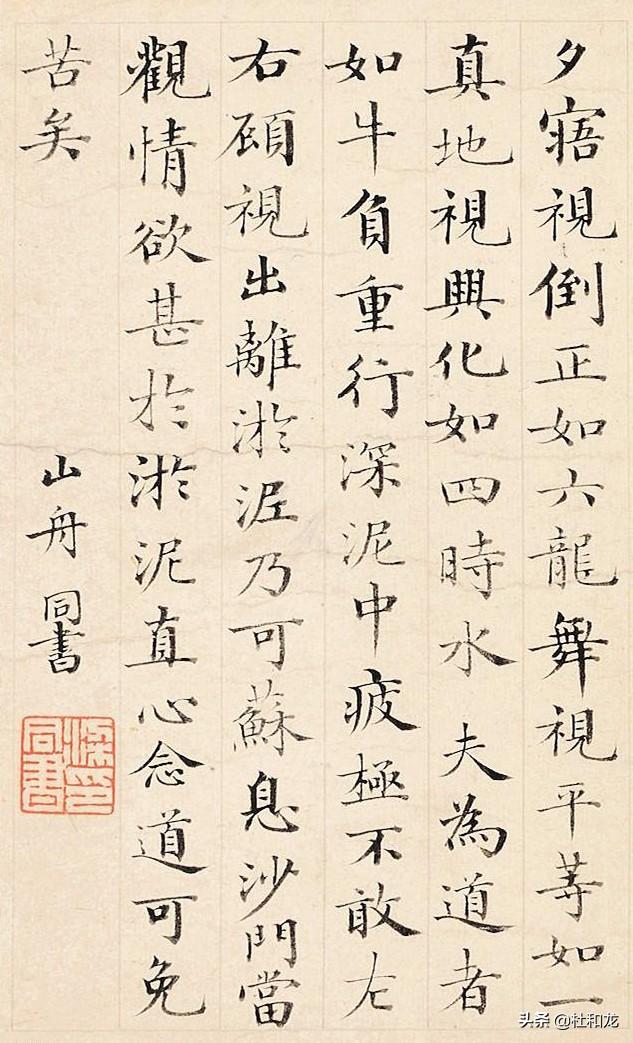 夕寤視倒正如六龍舞視平等如一
真地視興化如四時水夫為道者
如牛負重行深泥中疲極不敢左
右顧視出離淤泥乃可蘇息沙門當
觀情欲甚於淤泥直心念道可免
苦矣
山舟同書
頭条 @杜和龙